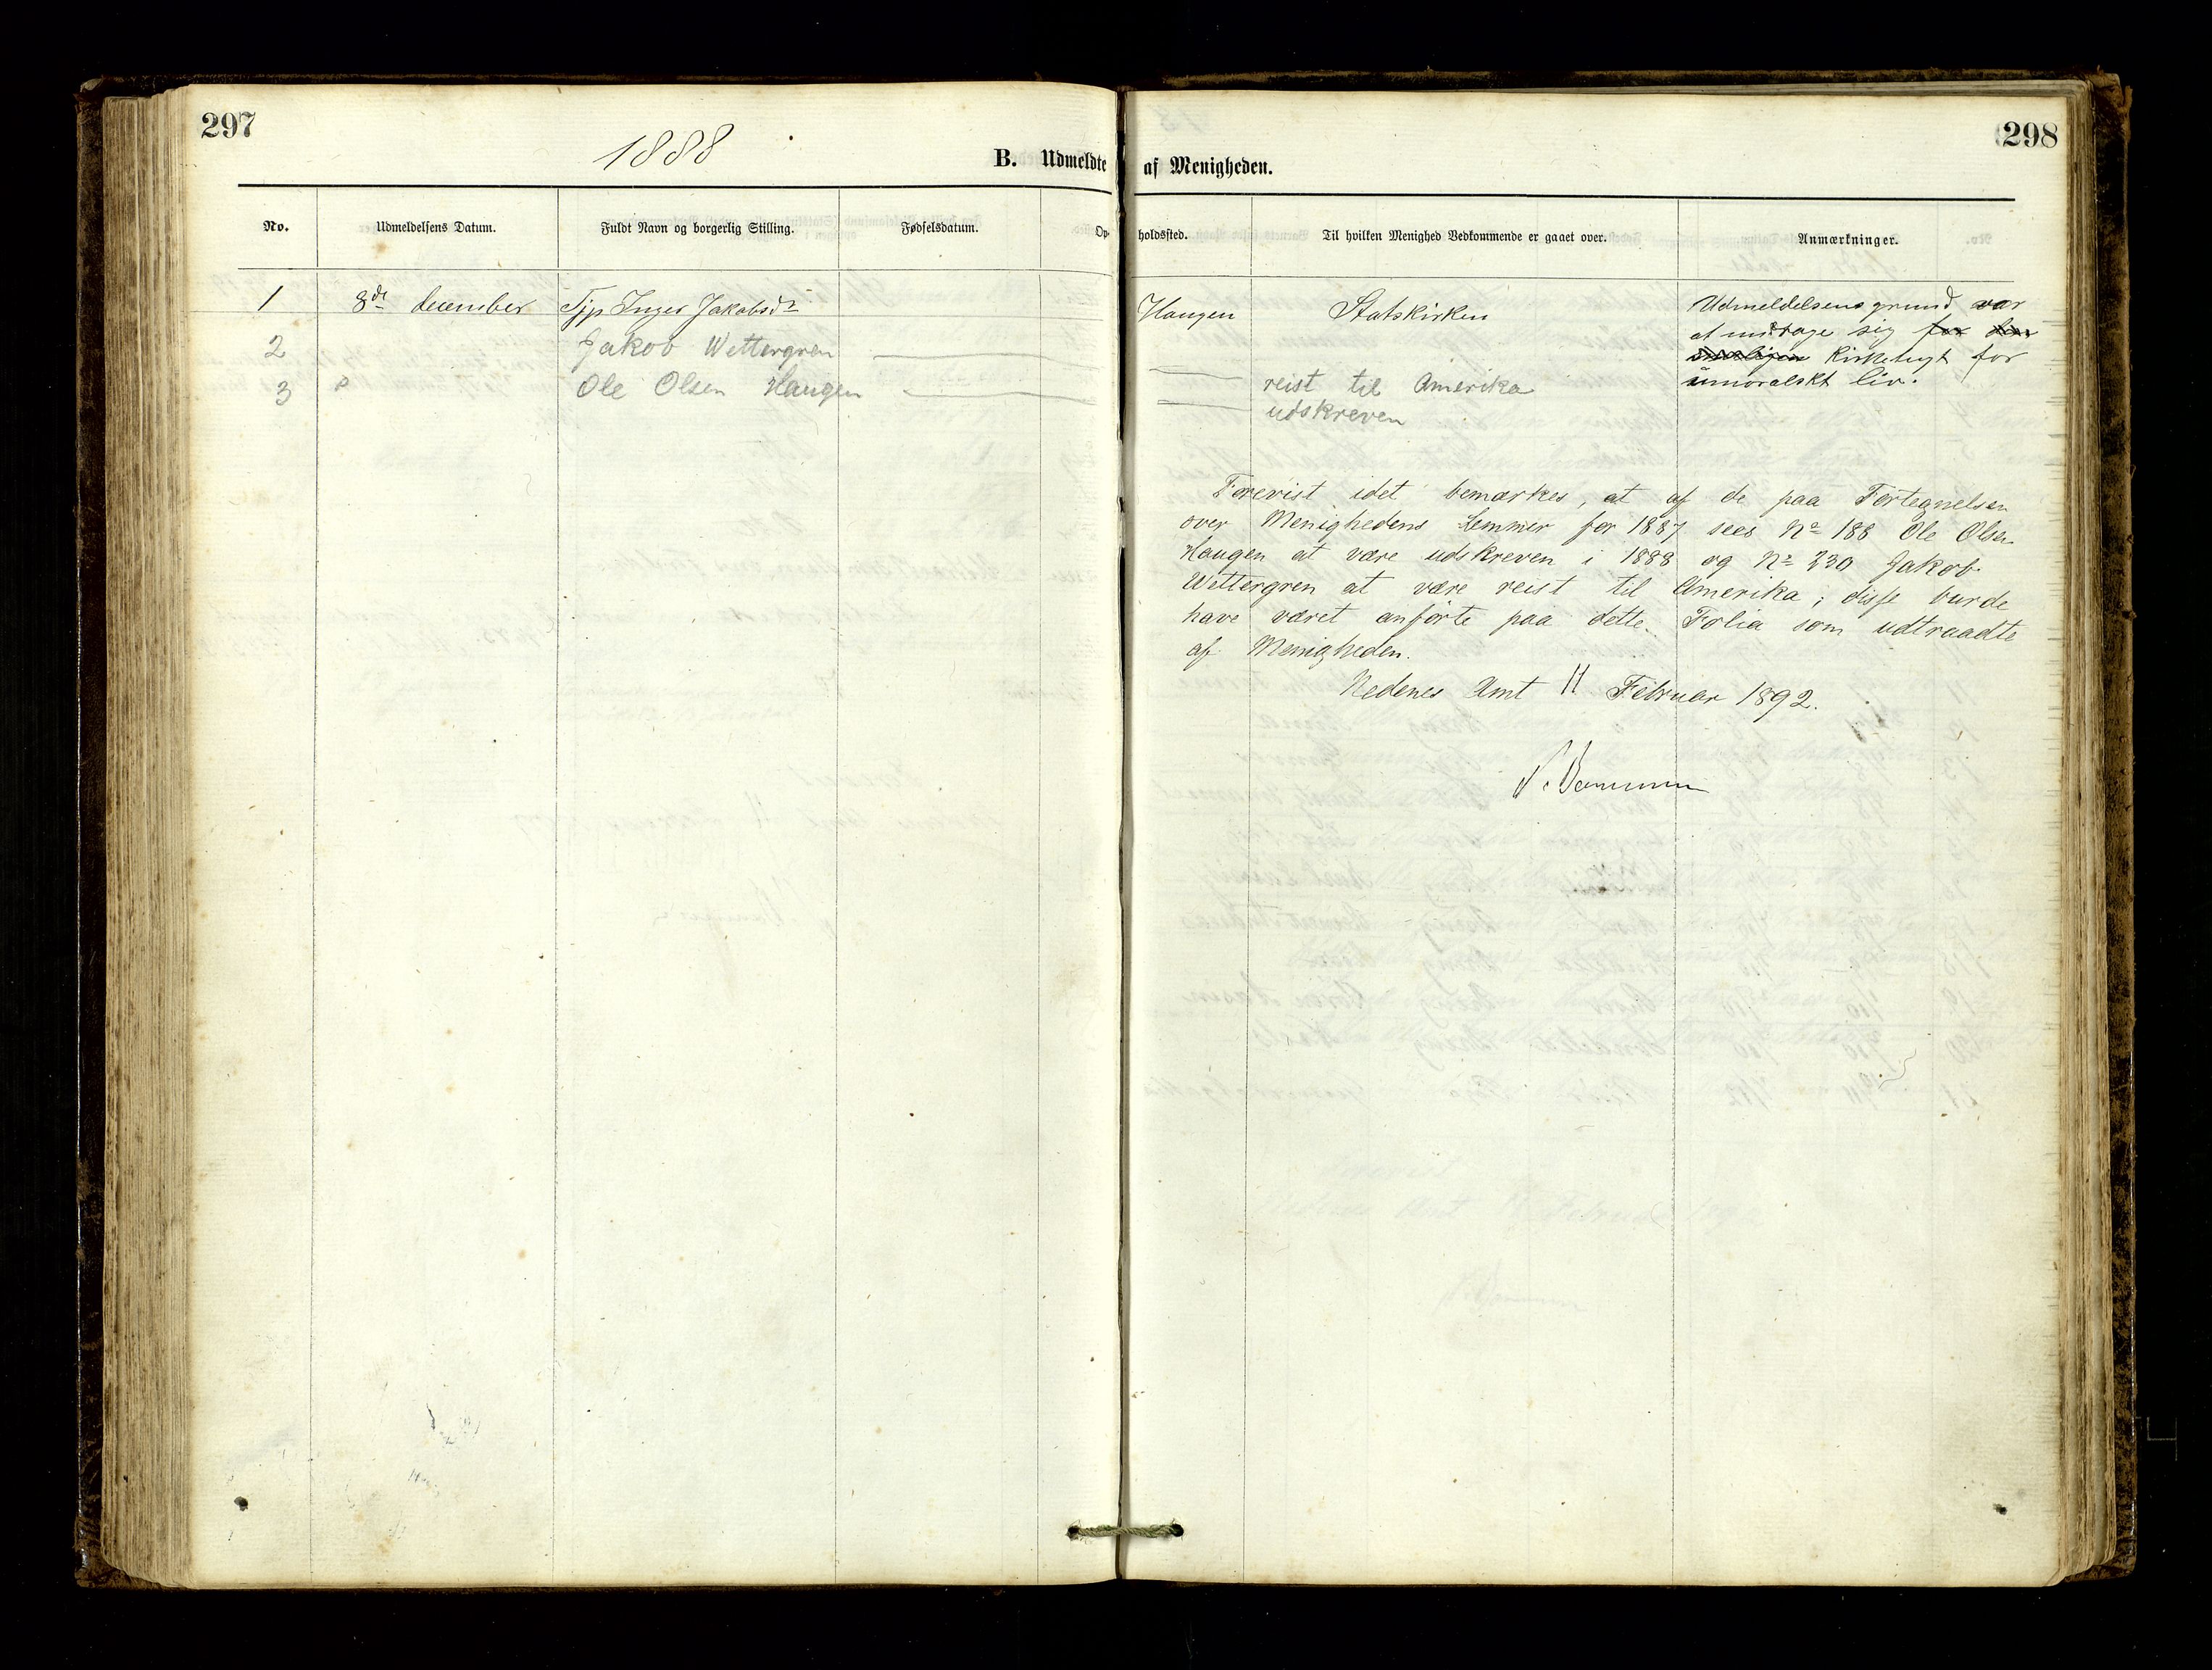 297
298
1888
B. Udmeldte af Menigheden.
No. Udmeldelsens Datum. Fuldt Navn og borgerlig Stilling. Fødselsdatum. Opholdssted. Til hvilken Menighed Vedkommende er gaaet over. Anmærkninger.
1 8de december Tjp Inger Jakobsdr Haugen Statskirken Udmeldelsens grund var
at undrage sig for den
Kirketugt for
umoralskt liv.
2 Jakob Wettergren — reist til Amerika
3 Ole Olsen Haugen — udskreven
Forevist idet bemærkes, at af de paa Fortegnelsen
over Menighedens Lemmer for 1887 sees No 188 Ole Olsen
Haugen at være udskreven i 1888 og No 230 Jakob
Wettergren at være reist til Amerika; disse burde
have været anførte paa dette Folia som udtraadte
af Menigheden.
Nedenes Amt 11 Februar 1892.